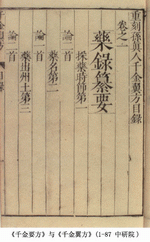 重刻孫真人千金翼方目録
卷之一
藥録纂要
採藥時節第一
論一首
藥名第二
論二首
藥出州土第三
論一首
《千金要方》与《千金翼方》(1-87 中研院)